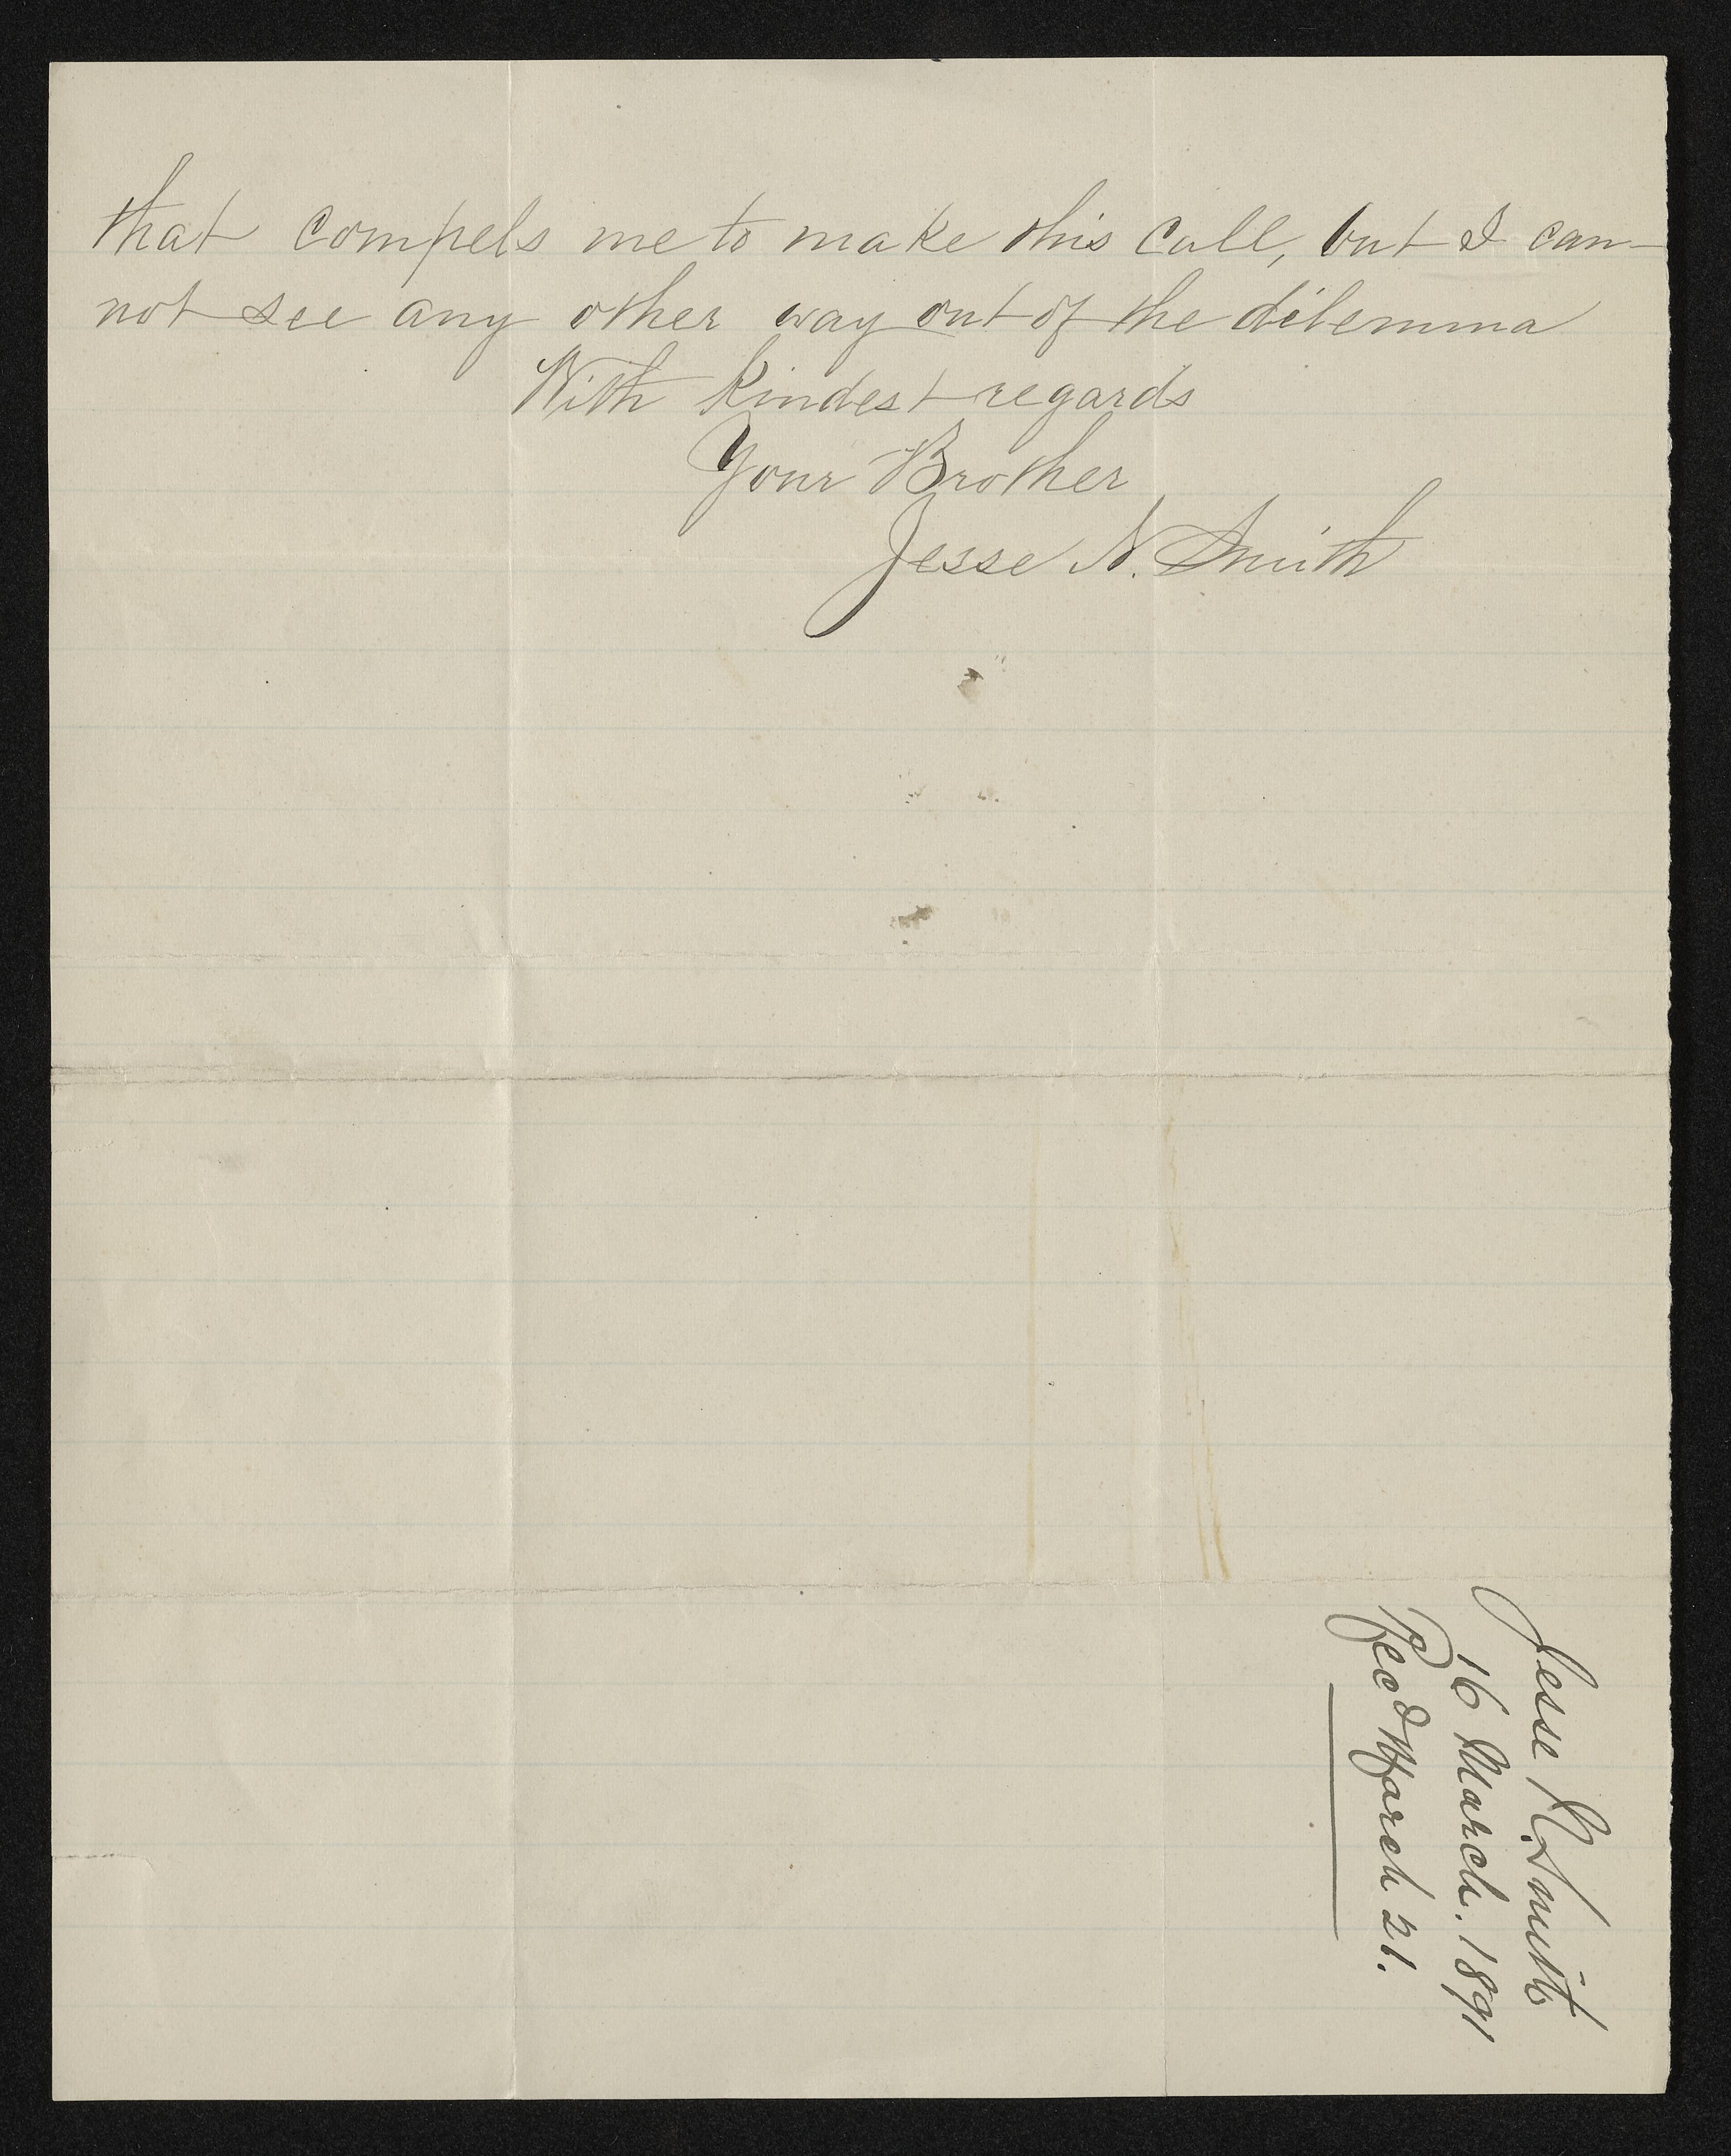 that compels me to make this call, but I can-
not see any other way out of the dilemma
With kindest regards
Your Brother
Jesse N. Smith
Jesse N. Smith
16 March. 1891
Recd March 21.